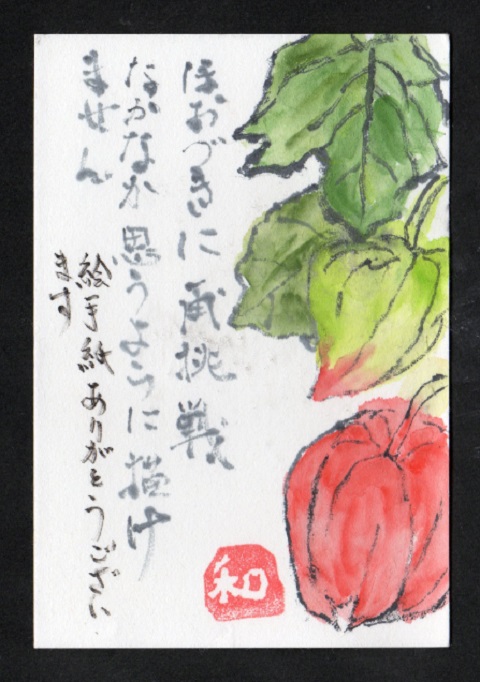 ほおづきに再挑戦
なかなか思うように描け
ません
絵手紙ありがとうござい
ます
和